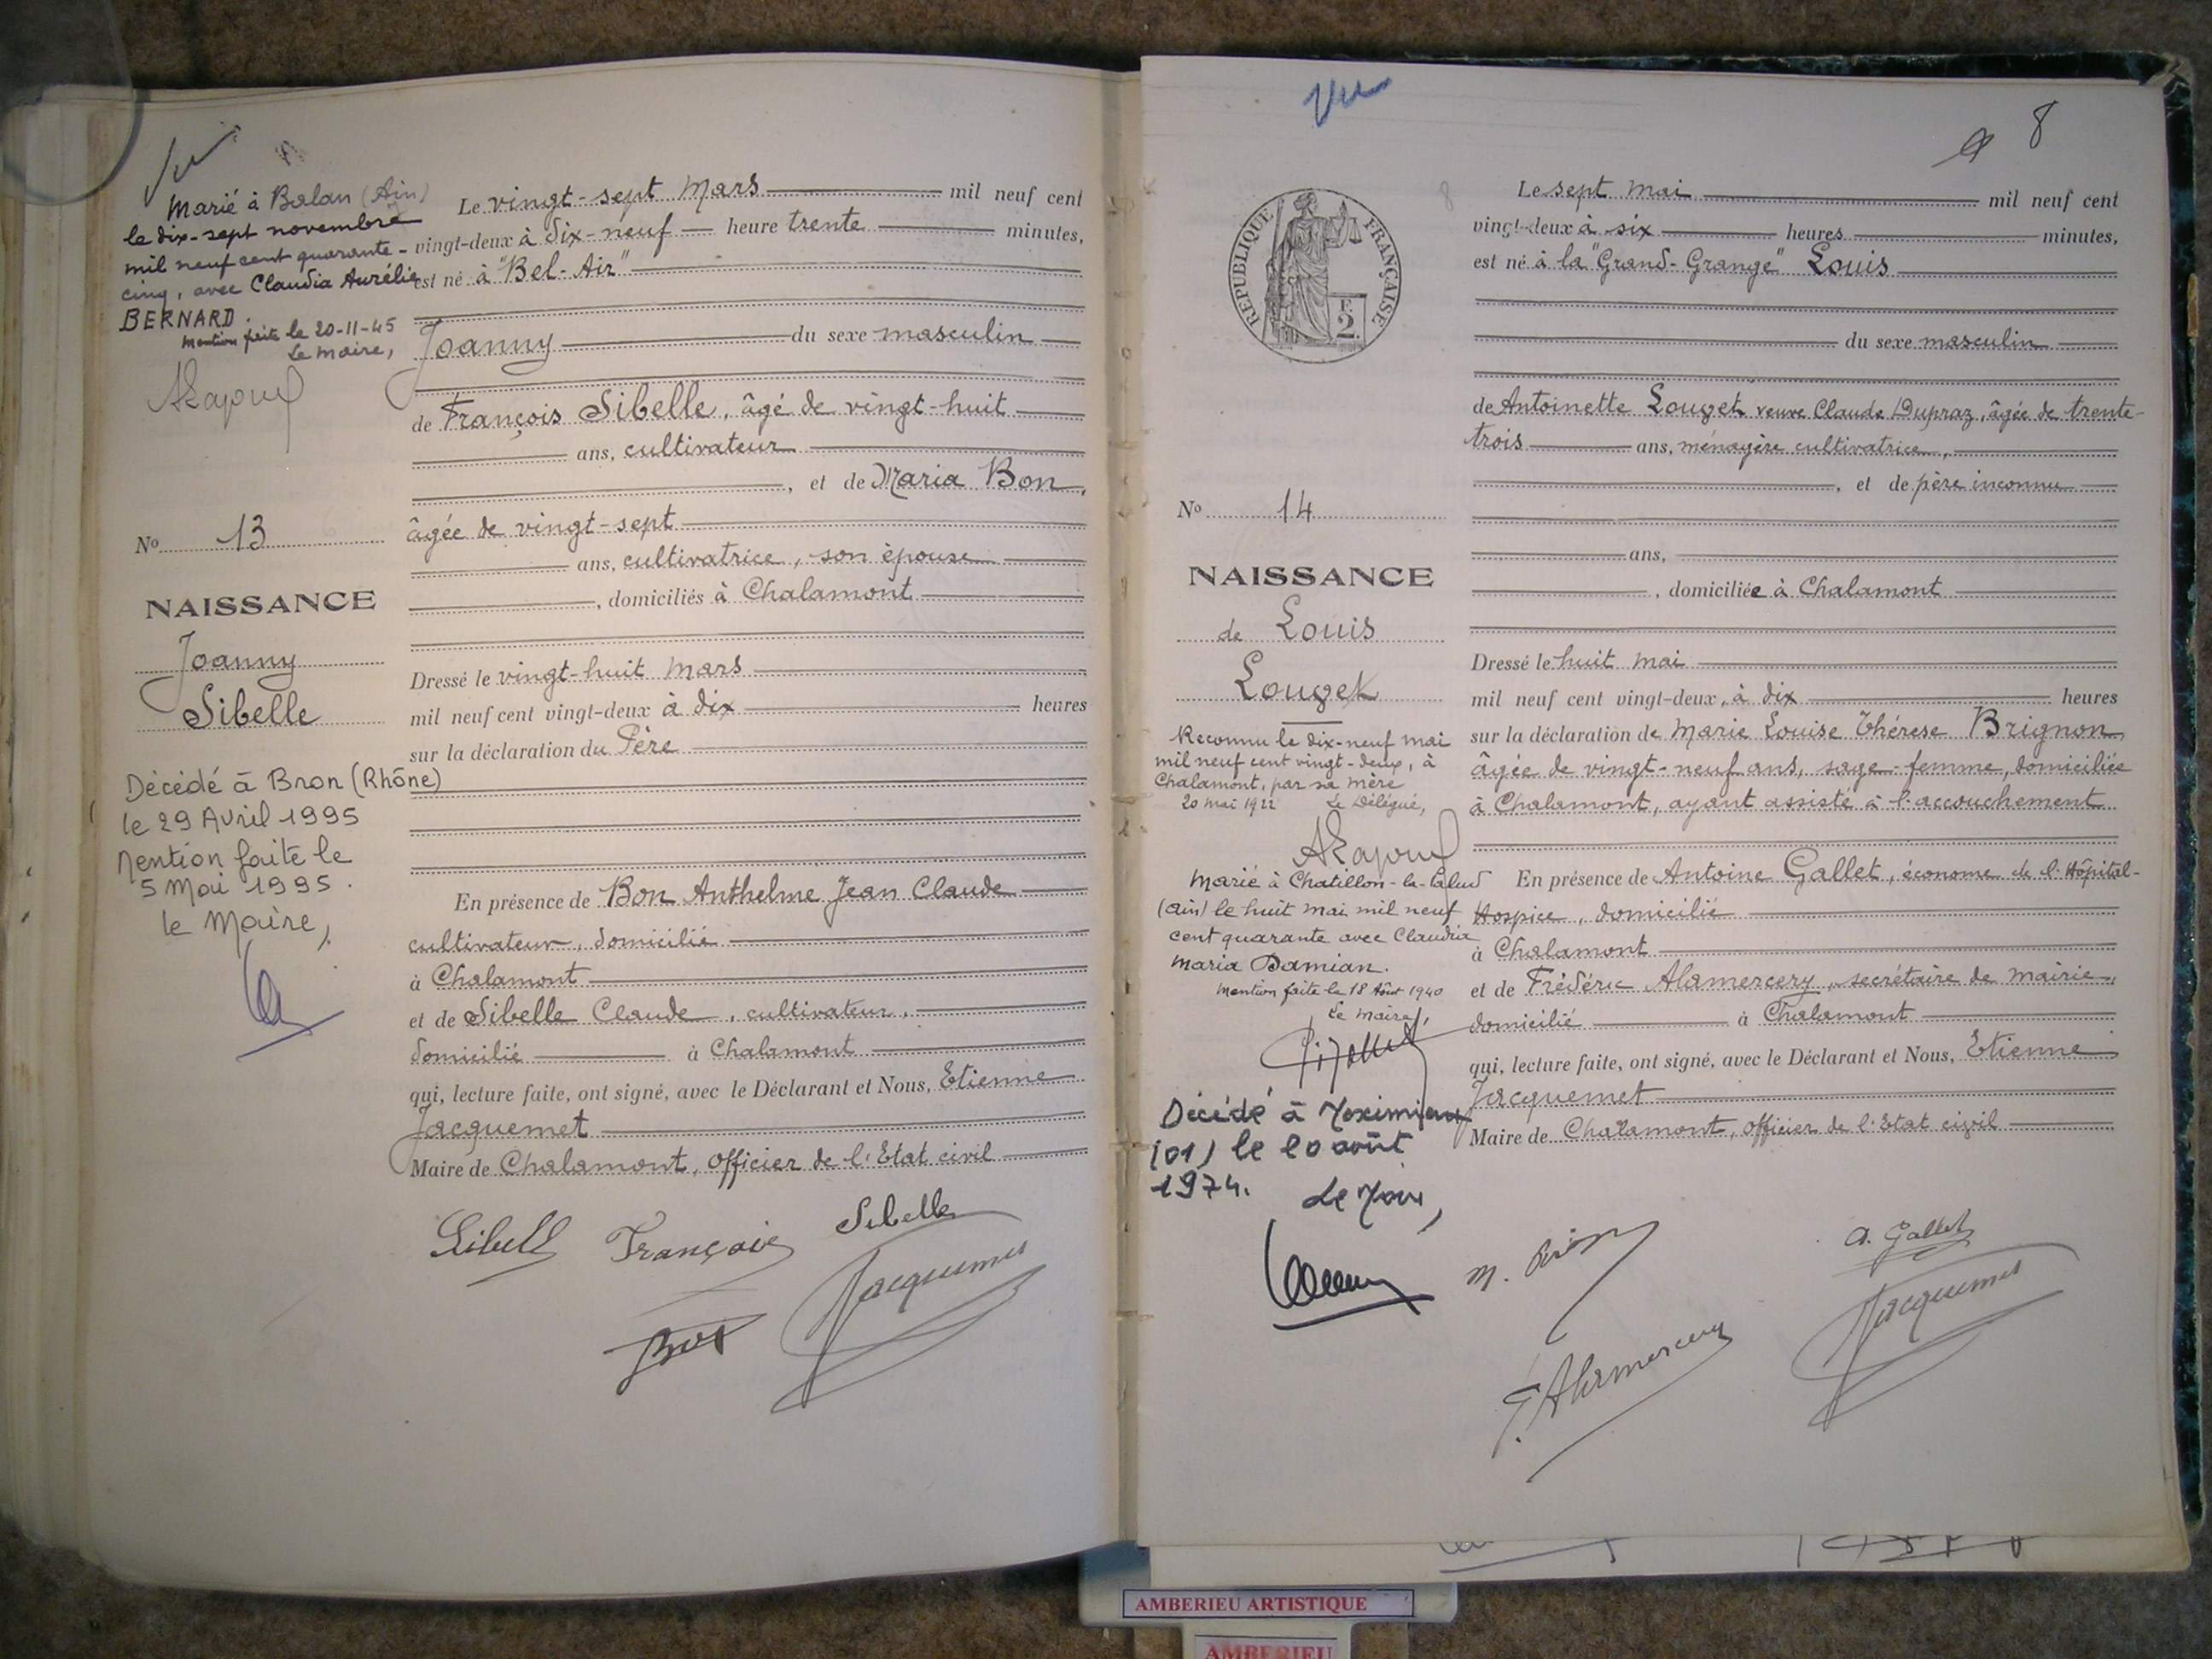 Vu
Marié à Balan (Ain)
le dix-sept novembre
mil neuf cent quarante-
cinq, avec Claudia Aurélie
BERNARD.
Mention faite le 20-11-45
Le Maire,
No 13
NAISSANCE
Joanny
Sibelle
Décédé à Bron (Rhône)
le 29 Avril 1995
Mention faite le
5 Mai 1995.
le Maire,
Le vingt-sept Mars mil neuf cent
vingt-deux à dix-neuf heure trente minutes,
est né à "Bel-Air"
Joanny du sexe masculin
de François Sibelle, âgé de vingt-huit
ans, cultivateur
, et de Maria Bon,
âgée de vingt-sept
ans, cultivatrice, son épouse
, domiciliés à Chalamont
Dressé le vingt-huit Mars
mil neuf cent vingt-deux à dix heures
sur la déclaration du Père
En présence de Bon Anthelme Jean Claude
cultivateur, domicilié
à Chalamont
et de Sibelle Claude, cultivateur,
domicilié à Chalamont
qui, lecture faite, ont signé, avec le Déclarant et Nous, Etienne
Jacquemet
Maire de Chalamont, Officier de l'Etat civil
Sibelle François Sibelle
Bon Jacquemet
Vu
8
REPUBLIQUE FRANÇAISE
F.
2
No 14
NAISSANCE
de Louis
Louget
Reconnu le dix-neuf mai
mil neuf cent vingt-deux, à
Chalamont, par sa mère
20 mai 1922 Le Délégué,
Marié à Chatillon-la-Palud
(Ain) le huit mai mil neuf
cent quarante avec Claudia
Maria Damian.
Mention faite le 18 Août 1940
Le Maire,
Décédé à Meximieux
(01) le 20 août
1974.
Le Maire,
Le sept mai mil neuf cent
vingt-deux à six heures minutes,
est né à la "Grand-Grange" Louis
du sexe masculin
de Antoinette Louget veuve Claude Dupraz, âgée de trente-
trois ans, ménagère cultivatrice,
, et de père inconnu
ans,
, domiciliée à Chalamont
Dressé le huit mai
mil neuf cent vingt-deux, à dix heures
sur la déclaration de Marie Louise Thérese Brignon,
âgée de vingt-neuf ans, sage-femme, domiciliée
à Chalamont, ayant assisté à l'accouchement
En présence de Antoine Gallet, économe de l'Hôpital-
Hospice, domicilié
à Chalamont
et de Frédéric Alamercery, secrétaire de mairie,
domicilié à Chalamont
qui, lecture faite, ont signé, avec le Déclarant et Nous, Etienne
Jacquemet
Maire de Chalamont, Officier de l'Etat civil
A. Gallet
F. Alamercery Jacquemet
AMBERIEU ARTISTIQUE
AMBERIEU